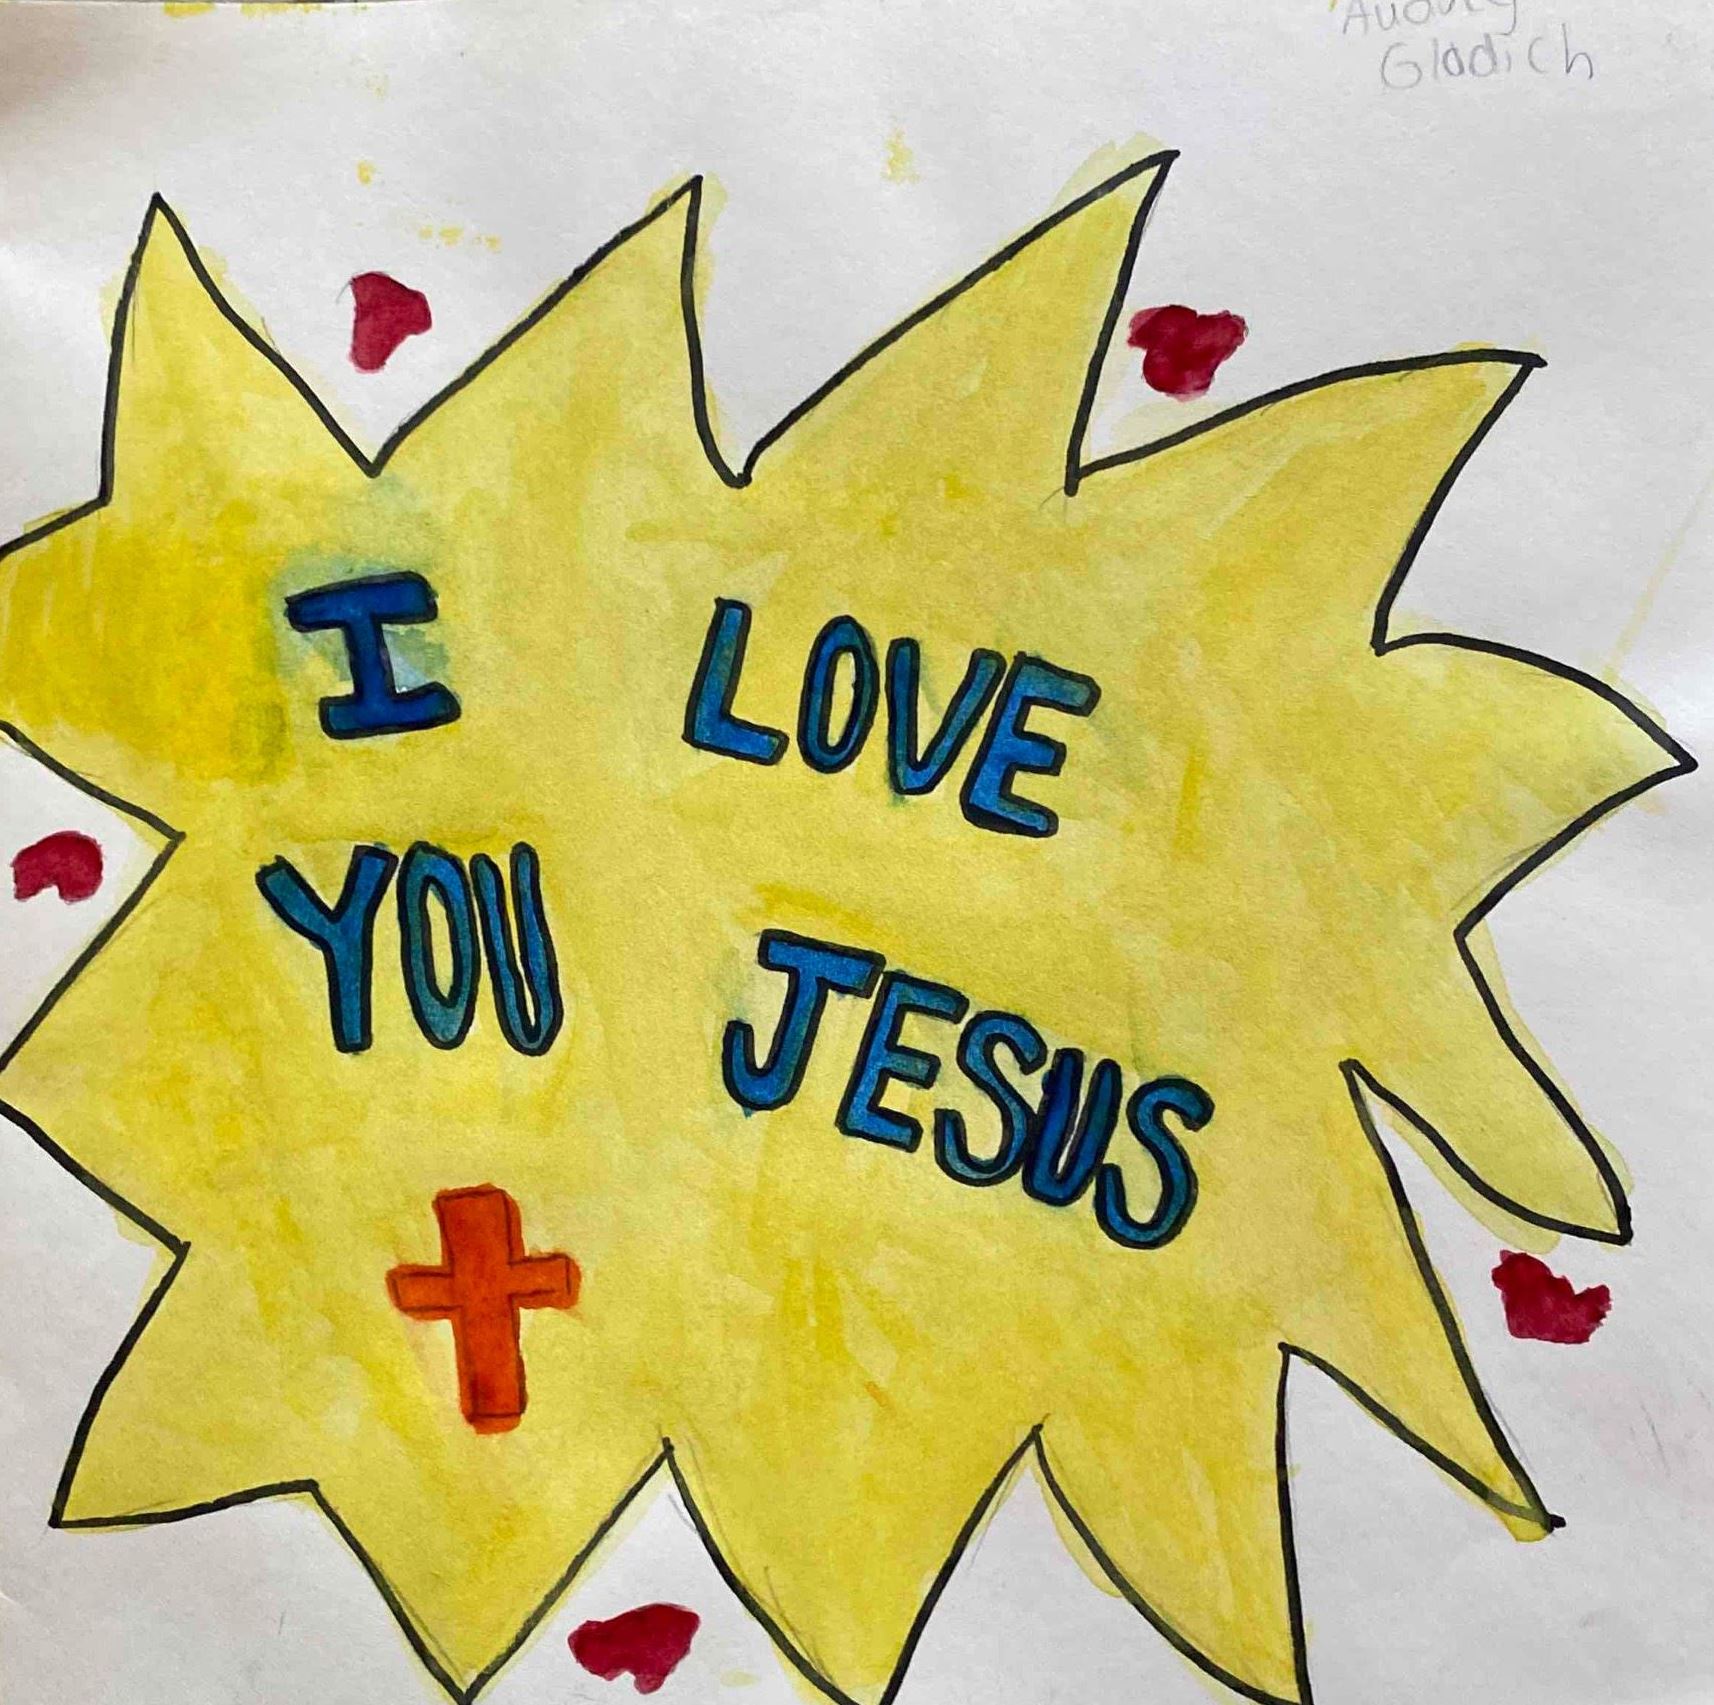 Audrey
Gladich
I LOVE
YOU JESUS